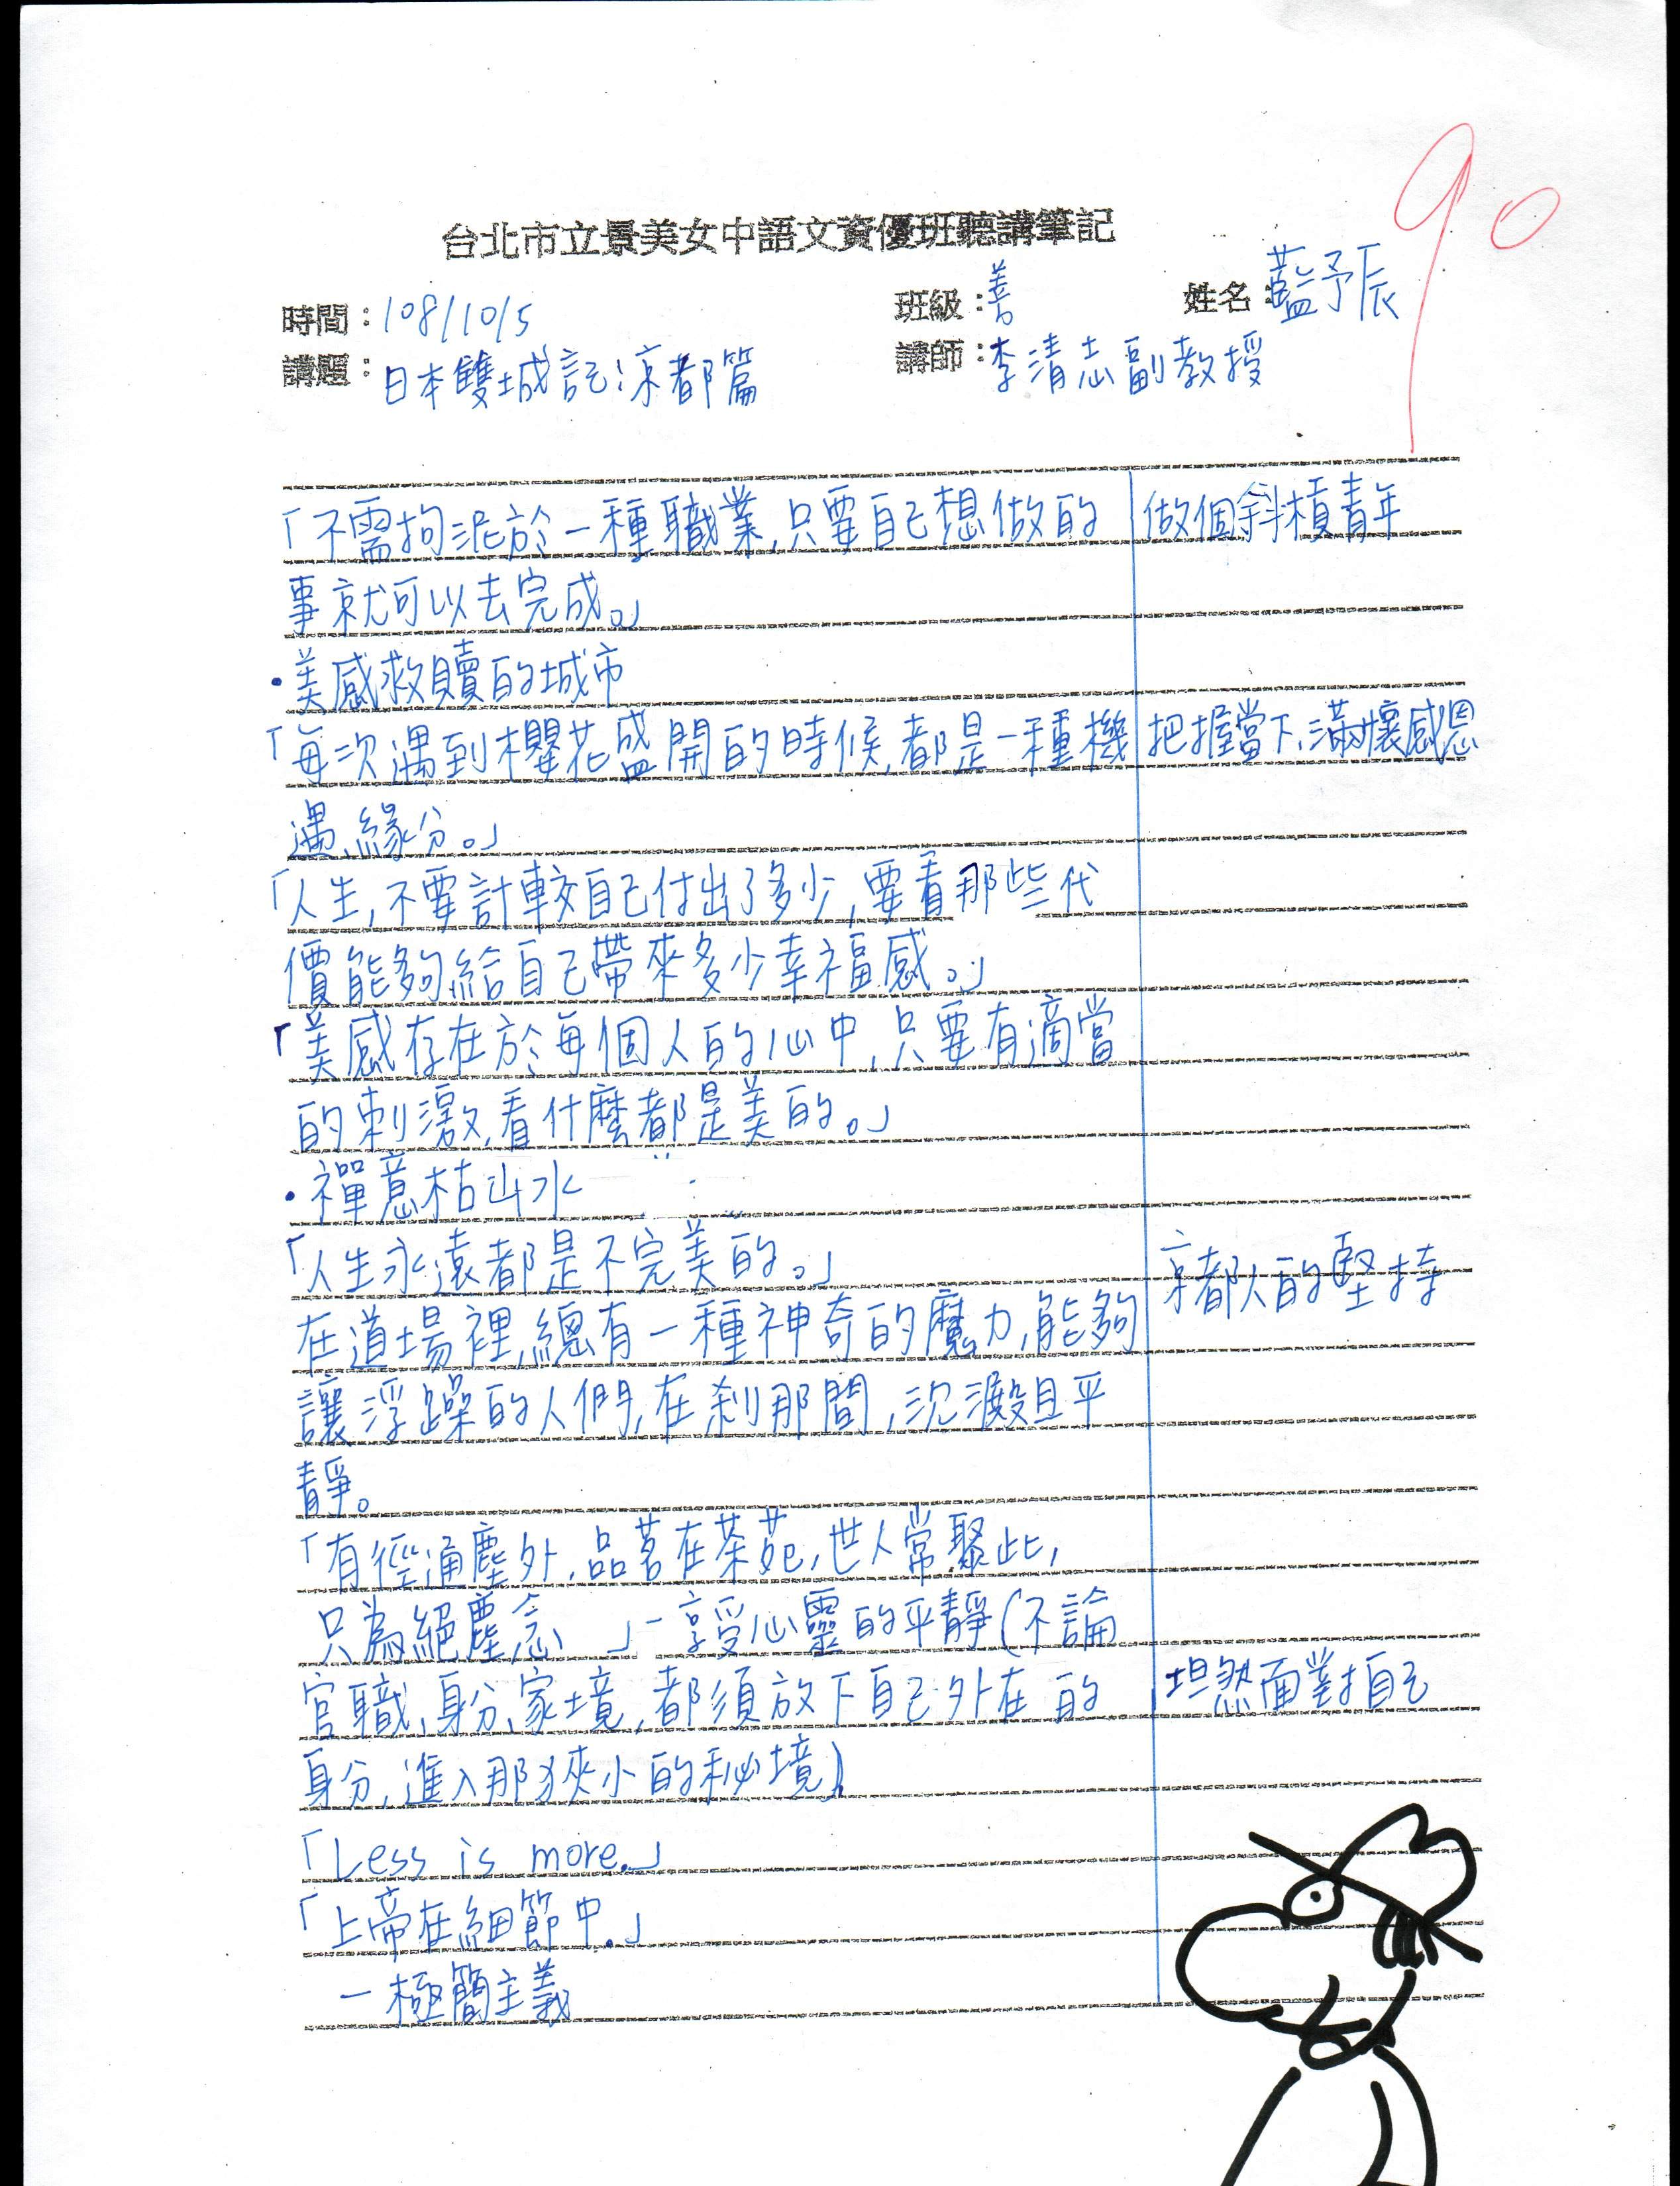 90
台北市立景美女中語文資優班聽講筆記
時間：108/10/5 班級：善 姓名：藍予辰
講題：日本雙城記：京都篇 講師：李清志副教授
「不需拘泥於一種職業,只要自己想做的 做個斜槓青年
事就可以去完成。」
·美感救贖的城市
「每次遇到櫻花盛開的時候,都是一種機 把握當下、滿懷感恩
遇、緣分。」
「人生,不要計較自己付出了多少,要看那些代
價能夠給自己帶來多少幸福感。」
「美感存在於每個人的心中,只要有適當
的刺激,看什麼都是美的。」
·禪意枯山水
「人生永遠都是不完美的。」 京都人的堅持
在道場裡,總有一種神奇的魔力,能夠
讓浮躁的人們,在剎那間,沈澱且平
靜。
「有徑通塵外,品茗在茶苑,世人常聚此,
只為絕塵念 」-享受心靈的平靜(不論
官職、身分、家境,都須放下自己外在的 坦然面對自己
身分,進入那狹小的秘境)
「Less is more.」
「上帝在細節中.」
—極簡主義